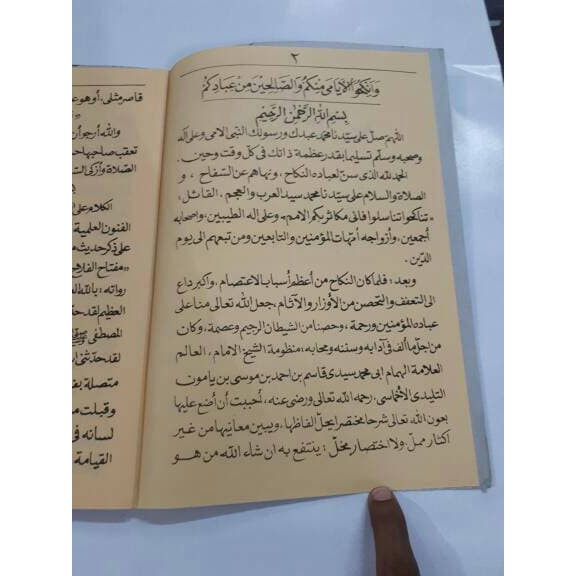 ٢
وَأَنكِحُوا الْأَيَامَى مِنكُمْ وَالصَّالِحِينَ مِنْ عِبَادِكُمْ
بِسْمِ اللهِ الرَّحْمٰنِ الرَّحِيْمِ
اللهم صل على سيدنا محمد عبدك ورسولك النبي الامي وعلى آله
وصحبه وسلم تسليما بقدر عظمة ذاتك في كل وقت وحين.
الحمد لله الذى سن لعباده النكاح ، ونهاهم عن السفاح ، و
الصلاة والسلام على سيدنا محمد سيد العرب والعجم ، القائل :
« تناكحوا تناسلوا فإنى مكاثر بكم الامم » وعلى آله الطيبين ، واصحابه
أجمعين ، وأزواجه أمهات المؤمنين والتابعين ومن تبعهم الى يوم
الدين .
وبعد : فلما كان النكاح من أعظم أسباب الاعتصام ، وأكبر داع
الى التعفف والتحصن من الأوزار والآثام ، جعل الله تعالى منا على
عباده المؤمنين ورحمة ، وحصنا من الشيطان الرجيم وعصمة ، وكان
من اجل ما ألف فى آدابه وسننه ومحابه ، منظومة الشيخ الامام ، العالم
العلامة الهمام ابى محمد سيدى قاسم بن احمد بن موسى بن يامون
التليدى الأخماسى . رحمه الله تعالى ورضى عنه ، أحببت أن أضع عليها
بعون الله تعالى شرحا مختصرا يحل الفاظها ، ويبين معانيها من غير
اكثار ممل ، ولا اختصار مخل : ينتفع به ان شاء الله من هو
قاصر مثلى ، أو هو
والله أرجو أن
تعقب صاحبها
الصلاة وأزكى
الكلام على
الفنون العلمية
على ذكر حديث
« مفتاح الفلاح
رواته : بالله
العظيم لقد
المصطفى ﷺ
لقد حدثنى
متصلة
وقبلت
لسانه فى
القيامة